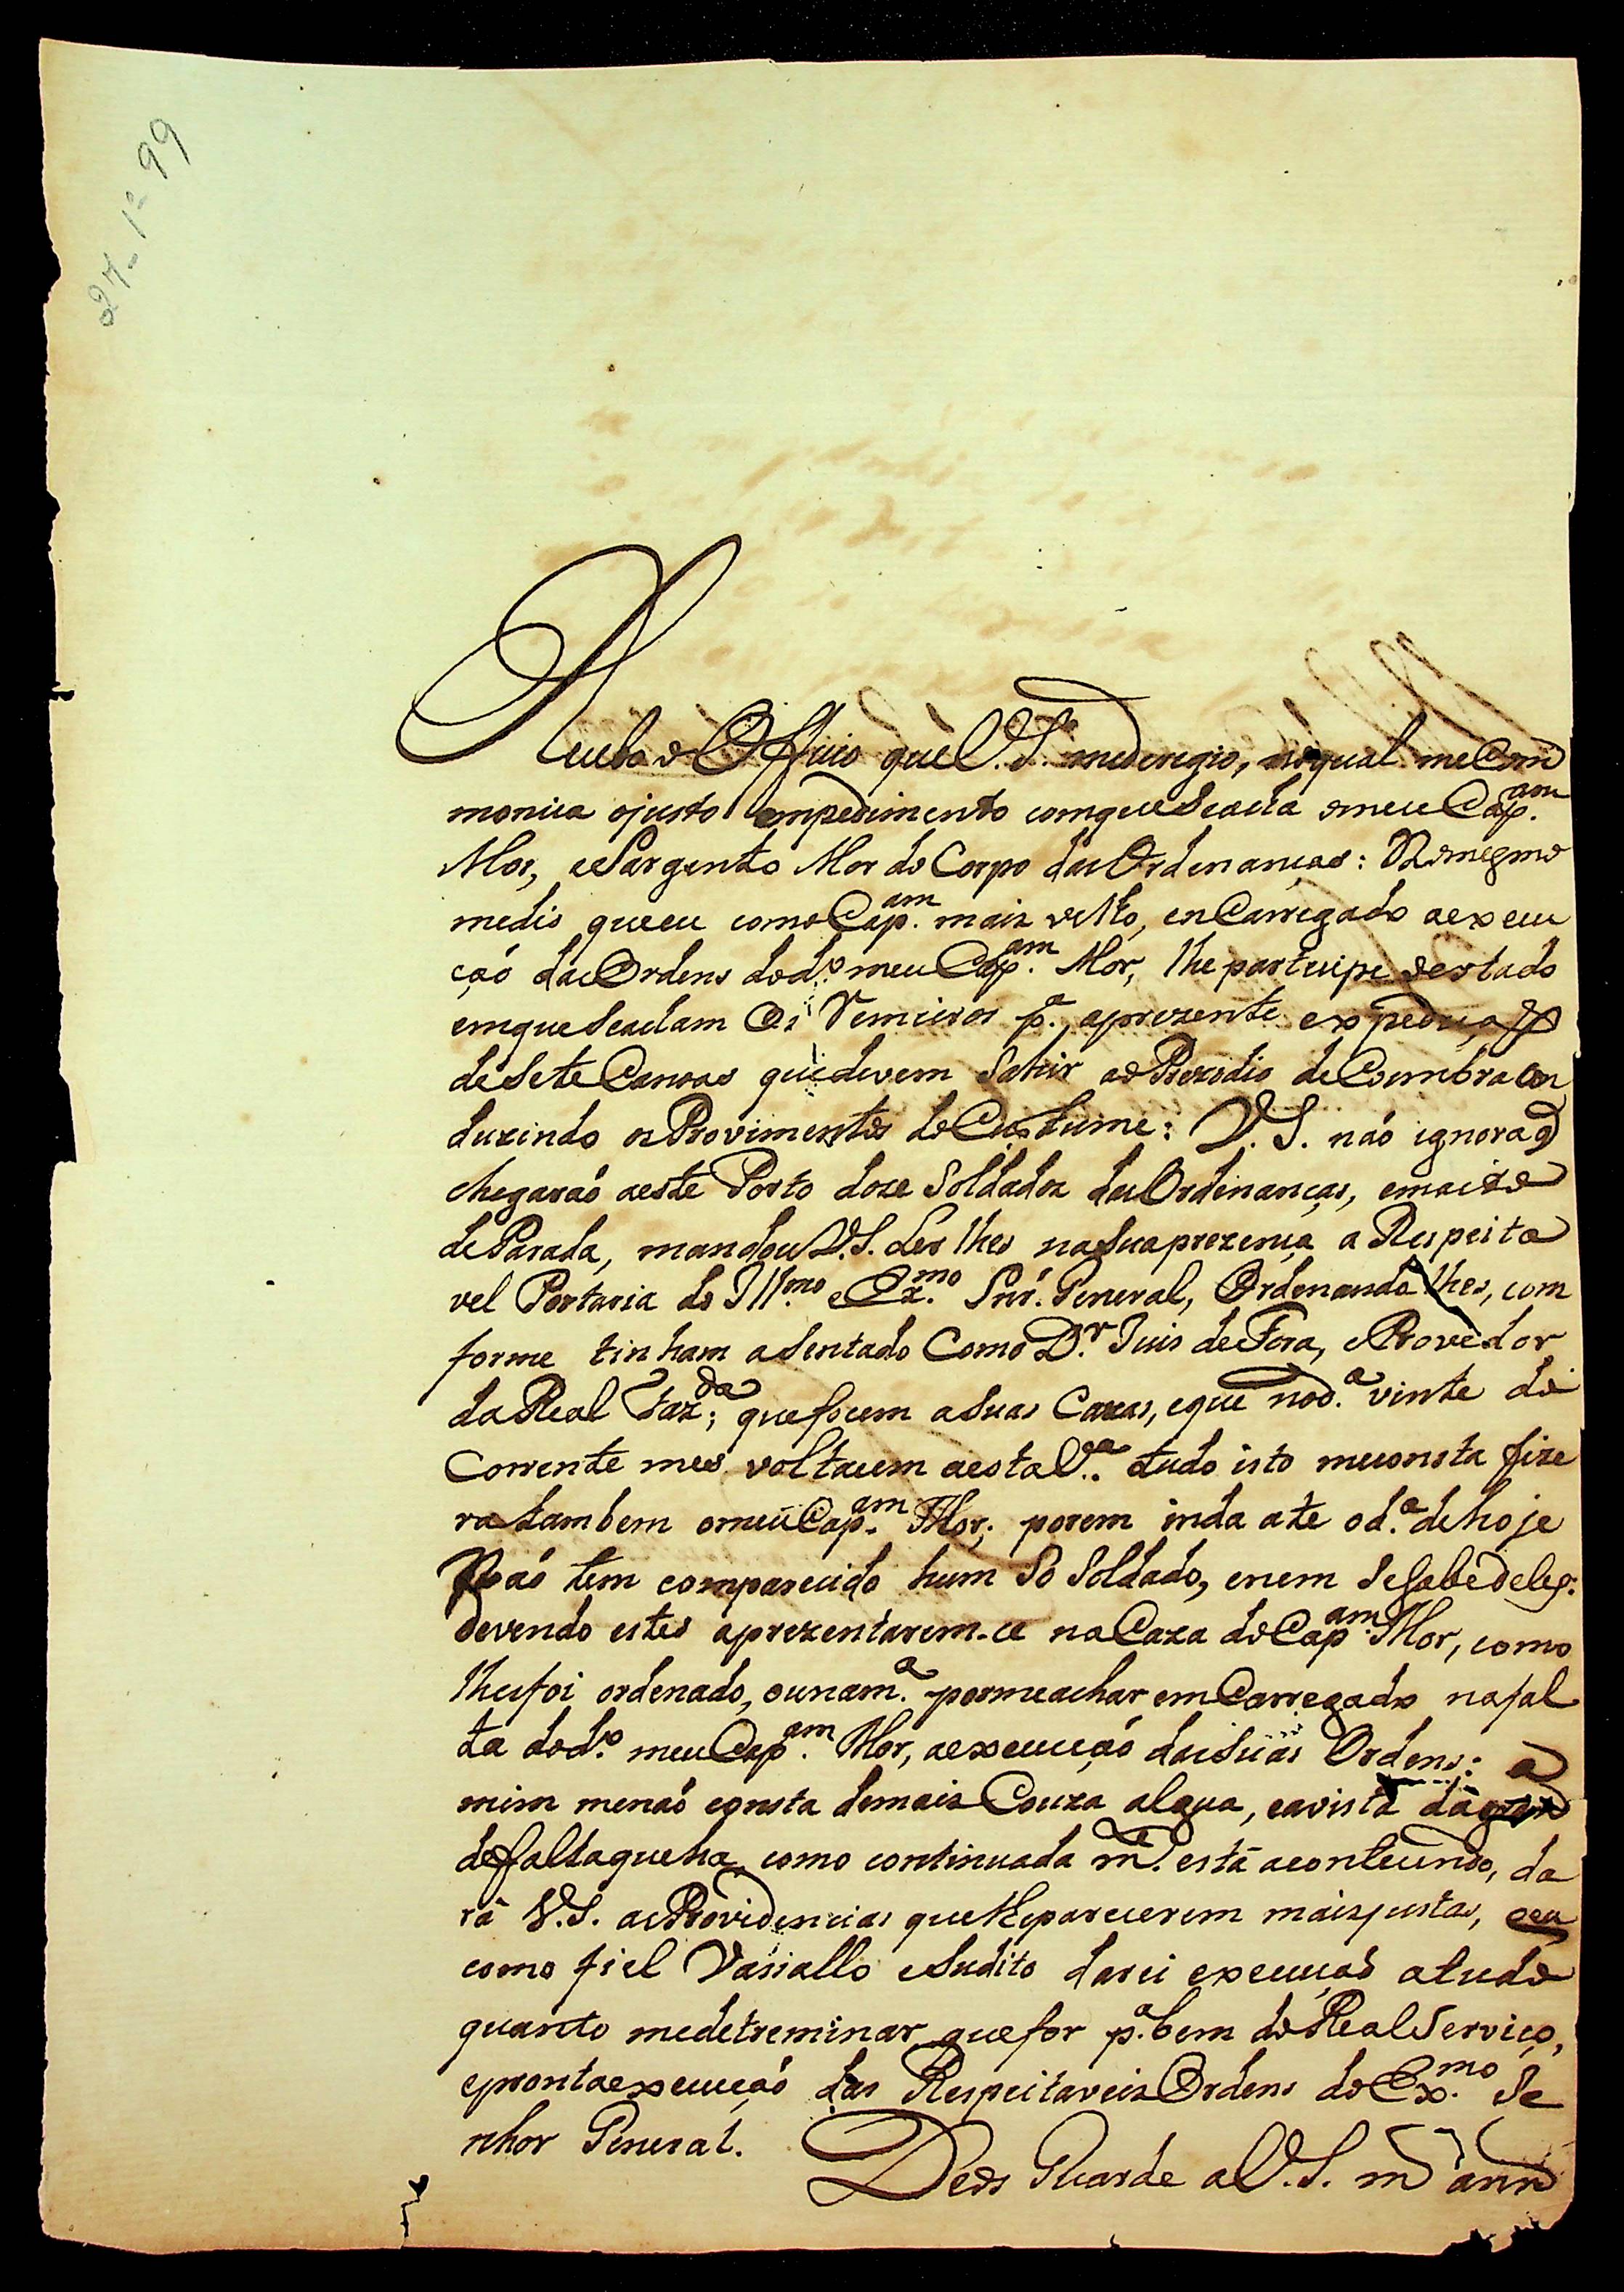 27-1º-99
Recebo o Officio que V. S.ª me deregio, no qual me Com
monica o justo empedimento com que Se acha o meu Cap.am
Mor, e Sargento Mor do Corpo das Ordenanças: No mesmo
medio que eu como Cap.am mais velho, en Carregado a execu
ção das Ordens do d.º meu Cap.am Mor, lhe participe o estado
em que Se acham Os Remeiros p.ª aprezente expedição
de Sete Canoas que devem Sahir ao Prezidio de Coimbra Con
duzindo os Provimentos do Custume: V. S. não ignora q
chegarão a este Porto doze Soldados das Ordenanças, e mais o
de Parada, mandou V. S. Ler lhes na Sua prezença a Respeita
vel Portaria do Ill.mo e Ex.mo Snr. General, Ordenando lhes, com
forme tinham asentado Com o D.r Juis de Fora, e Provedor
da Real Faz.da; que focem a Suas Cazas, e que no d.ª vinte do
Corrente mes voltacem a esta V.ª tudo isto me consta fize
ra tambem o meu Cap.am Mor; porem inda ate o d.ª de hoje
Não tem comparecido hum So Soldado, e nem Se Sabe deles:
devendo estes aprezentarem-ce na Caza do Cap.am Mor, como
lhes foi ordenado, ou na m.ª por me achar em Carregado na fal
ta do d.º meu Cap.am Mor, a execução das Suas Ordens: a
mim me não consta de mais Couza algua, e a vista da gran
de falta que ha, como continuada m.te está acontecendo, da
rá V. S. as Providencias que lhe parecerem mais justas, e eu
como fiel Vassallo e Sudito darei execução a tudo
quanto me detreminar que for p.ª bem do Real Serviço,
e pronta execução das Respeitaveis Ordens do Ex.mo Se
nhor General.
Deos Guarde a V. S. m ann